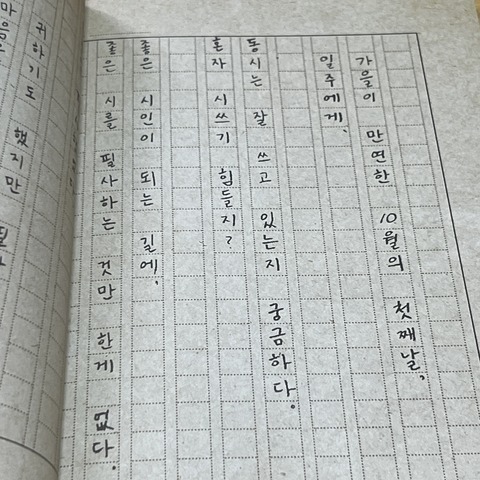 가을이 만연한 10월의 첫째날,
일주에게,
동시는 잘 쓰고 있는지 궁금하다.
혼자 시쓰기 힘들지?
좋은 시인이 되는 길에,
좋은 시를 필사하는 것만 한게 없다.
귀하기도 했지만